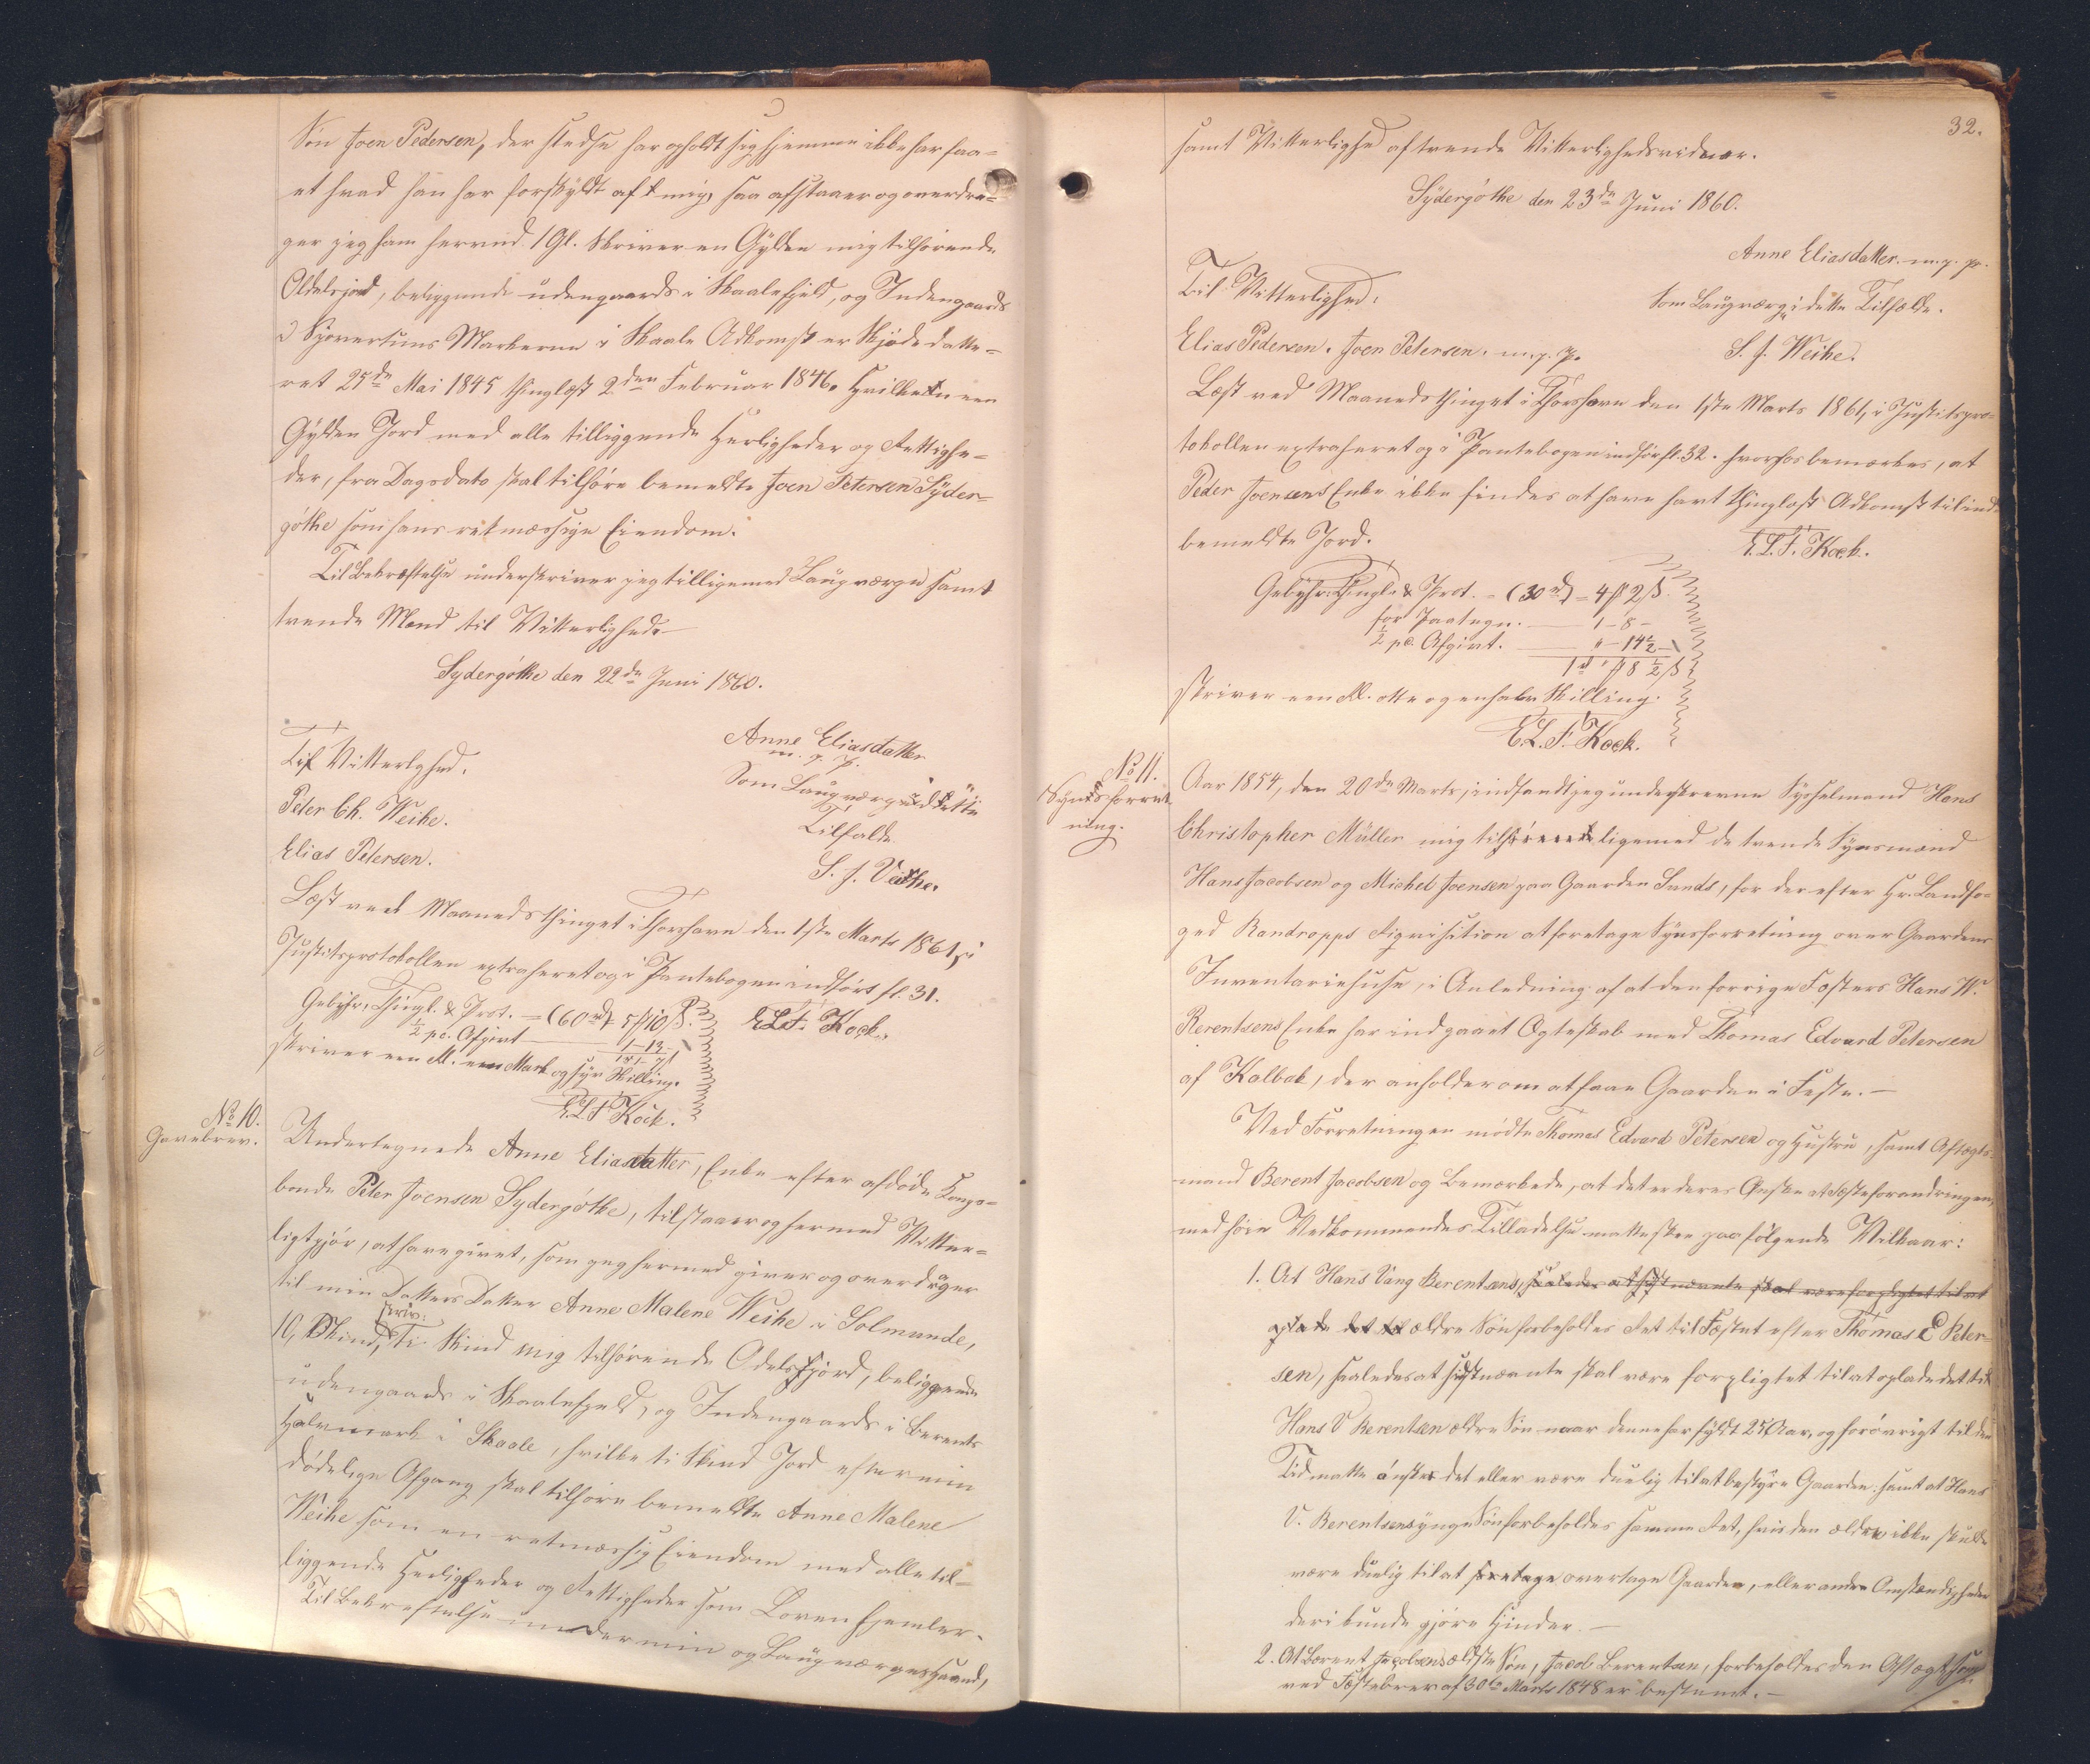 Søn Joen Pedersen, der stedse har opholdt sig hjemme ikke har faa-
et hvad han har forskyldt af mig, saa afstaaer og overdra-
ger jeg ham herved 1 Gl. skriver en Gylden mig tilhørende
Odelsjord, beliggende udengaards i Skaalefjeld, og Indengaards
i Markerne i Skaale Adkomst er Skjøde date-
ret 25de Mai 1845 thinglæst 2den Februar 1846. Hvilken een
Gylden Jord med alle tilliggende Herligheder og Rettighe-
der, fra Dags dato skal tilhøre bemeldte Joen Petersen Syder-
gøthe som hans retmæssige Eiendom.
Til Bekræftelse underskriver jeg tilligemed Laugværge samt
tvende Mænd til Vitterlighed
Sydergøthe den 22de Juni 1860.
Anne Eliasdatter
m. p.
Til Vitterlighed.
Som Laugværge i dette
Tilfælde
Peter Ch. Weihe.
Elias Petersen.
S. J. Veihe.
Læst ved Maanedsthinget i Thorshavn den 1ste Marts 1861, i
Justitsprotokollen extraheret og i Pantebogen indført fl. 31.
Gebyhr: Thingl. & Prot. = (60 rd) 5 # 10 ß.
E.L.F. Kock.
½ pc. Afgivt 1-13-
1 rd 1-7 ß
skriver een Rd. een Mark og syv Skilling.
E.L.F. Kock.
No 10.
Gavebrev.
Undertegnede Anne Eliasdatter, Enke efter afdøde Kongs-
bonde Peter Joensen Sydergøthe, tilstaaer og hermed Vitter-
ligtgjør, at have givet, som jeg hermed giver og overdrager
til min Datters Datter Anne Malene Weihe i Solmunde,
skriv:
10, Skind, Ti Skind mig tilhørende Odelsjord, beliggende
udengaards i Skaalefjeld, og Indengaards i Berents
Halvmark i Skaale, hvilke ti Skind Jord efter min
dødelige Afgang skal tilhøre bemeldte Anne Malene
Weihe som en retmæssig Eiendom med alle til-
liggende Herligheder og Rettigheder som Loven hjemler.
Til Bekræftelse under min og Laugværges Haand,
32.
samt Vitterlighed af tvende Vitterlighedsvidner.
Sydergøthe den 23de Juni 1860.
Anne Eliasdatter. m. p.
Til Vitterlighed.
Som Laugværge i dette Tilfælde.
Elias Pedersen. Joen Petersen. m. p.
S. J. Weihe.
Læst ved Maanedsthinget i Thorshavn den 1ste Marts 1861, i Justitspro-
tokollen extraheret og i Pantebogen indført fl. 32. hvorhos bemærkes, at
Peder Joensens Enke ikke findes at have havt thinglæst Adkomst til ind-
bemeldte Jord.
E.L.F. Kock.
Gebyhr: Thingl. & Prot. = (30 rd) = 4 # 2 ß.
for Paategn. 1-8-
½ pc. Afgivt. " - 14½
1 rd " # 8½ ß
skriver een Rd. otte og en halv Skilling.
E.L.F. Kock.
No 11.
Synsforret-
ning.
Aar 1854, den 20de Marts, indfandt jeg underskrevne Sysselmand Hans
Christopher Müller mig tilligemed de tvende Synsmænd
Hans Jacobsen og Michel Joensen paa Gaarden Sands, for der efter Hr. Landfo-
ged Randropps Reqvisition at foretage Synsforretning over Gaardens
Inventariehuse, i Anledning af at den forrige Fæsters Hans W.
Berentsens Enke har indgaaet Ægteskab med Thomas Edvard Petersen
af Kalbak, der anholder om at faae Gaarden i Fæste. —
Ved Forretningen mødte Thomas Edvard Petersen og Hustru, samt Aftægts-
mand Berent Jacobsen og Bemærkede, at det er deres Ønske at Fæsteforandringen,
med høie Vedkommendes Tilladelse maatte skee paa følgende Vilkaar:
1. At Hans Vang Berentsens, saaledes at sidstnævnte skal være forpligtet til at
oplade det til ældre Søn forbeholdes Ret til Fæstet efter Thomas E Peter-
sen, saaledes at sidstnævnte skal være forpligtet til at oplade det til
Hans V Berentsen ældre Søn naar denne har fyldt 25 Aar, og forøvrigt til den
Tid maatte ønske det eller være duelig til at bestyre Gaarden. samt at Hans
V. Berentsens yngre Søn forbeholdes samme Ret, hvis den ældre ikke skulde
være duelig til at foretage overtage Gaarden, eller andre Omstændigheder
deri kunde gjøre Hinder. —
2. At Berent Jacobsens ældste Søn, Jacob Berentsen, forbeholdes den Aftægt som
ved Fæstebrev af 30te Marts 1848 er bestemt. —